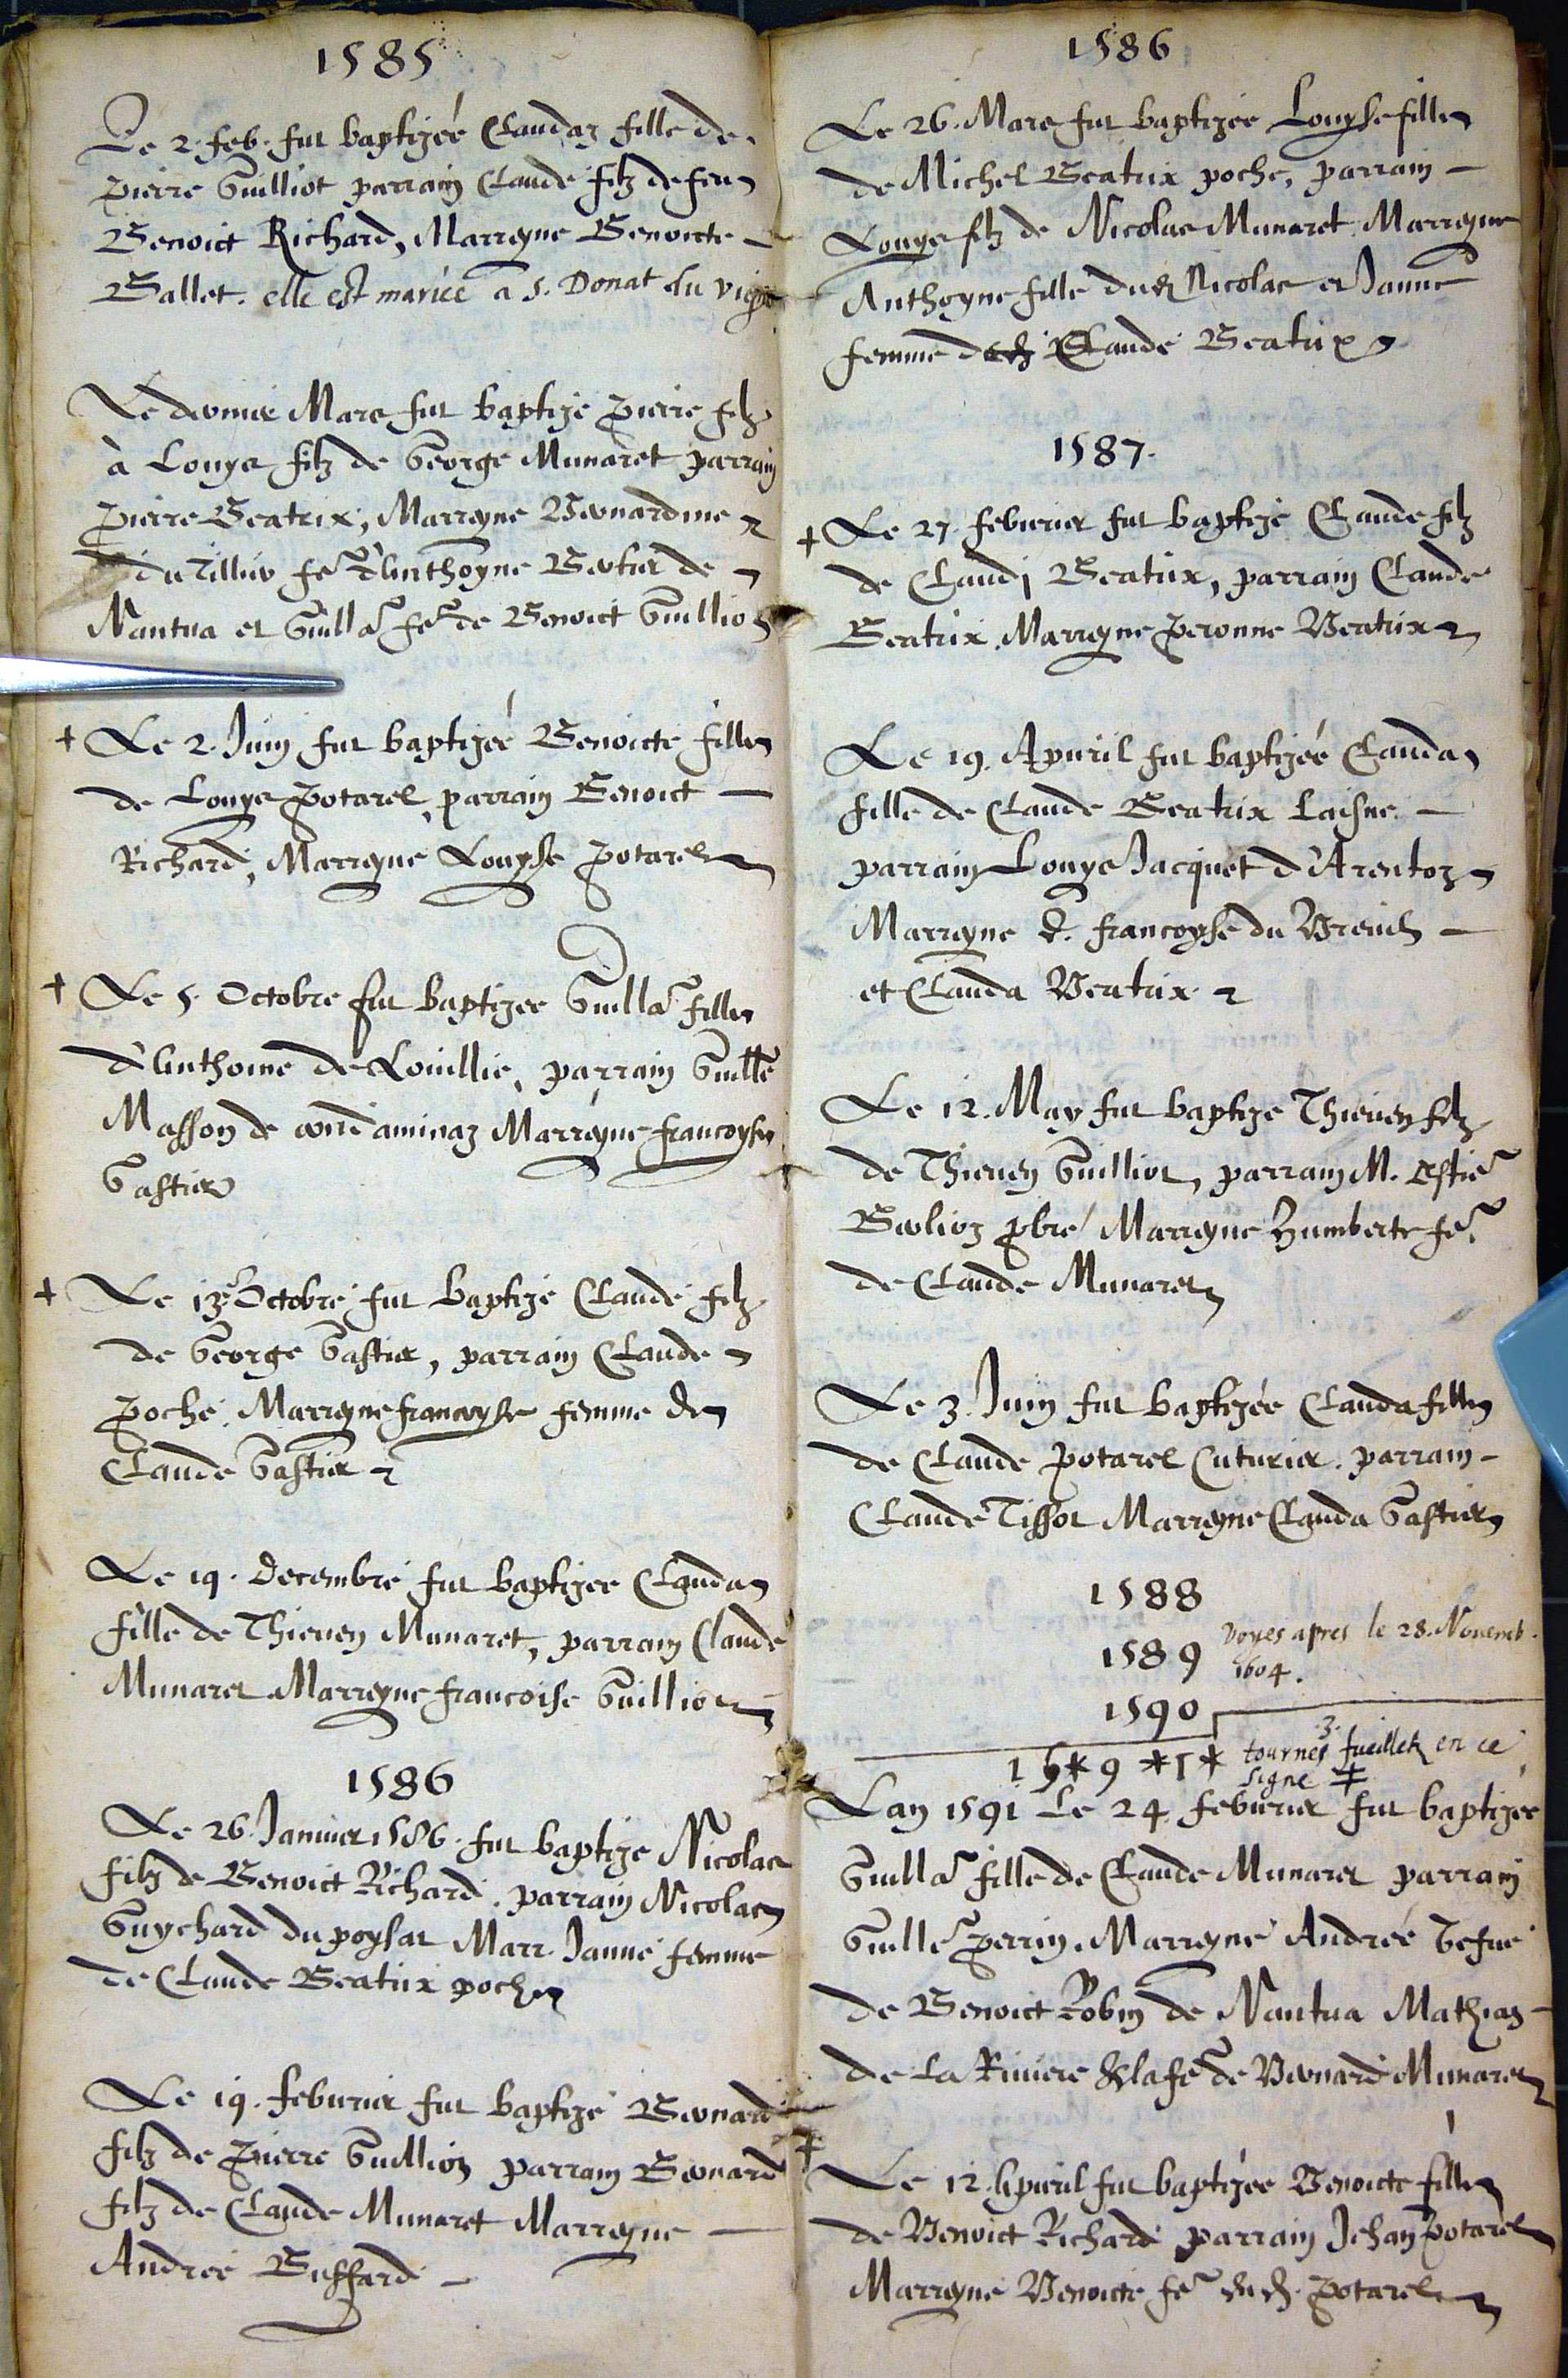 1585
Le 2. feb. fut baptizeé Claudaz fille de
pierre Guilliot parrain Claude filz de feu
Benoict Richard, Marreyne Benoicte
Ballet. elle est mariée a S. Donat du
Le dernier Mars fut baptizé pierre filz
à Louys filz de George Munaret parrain
pierre Beatrix, Marreyne Bernardine
du Tillier fe d'Anthoyne Bertier de
Nantua et Guilla fe de Benoict Guillion
+ Le 2. Juin fut baptizeé Benoicte fille
de Louys potarel, parrain Benoict
Richard, Marreyne Louyse potarel
+ Le 5. Octobre fut baptizee Guilla fille
d'Anthoine de Louillie, parrain Guille
Masson de Marreyne francoyse
Gastier
+ Le 13 Octobre fut baptizé Claude filz
de George Gastier, parrain Claude
poche. Marreyne francoyse femme de
Claude Gastier
Le 19. decembre fut baptizee Clauda
fille de Thieuen Munaret, parrain Claude
Munaret Marreyne francoise Guillion
1586
Le 26 Januier 1586. fut baptizé Nicolas
filz de Benoict Richard. parrain Nicolas
Guychard du poysat Marr. Janne femme
de Claude Beatrix poche
Le 19. feburier fut baptizé Bernard
filz de pierre Guillion parrain Bernard
filz de Claude Munaret Marreyne
Andreé Buffard
1586
Le 26. Mars fut baptizeé Louyse fille
de Michel Beatrix poche, parrain
Louys filz de Nicolas Munaret Marreyne
Anthoyne fille dud Nicolas et Janne
femme Claude Beatrix
1587.
+ Le 27. feburier fut baptizé Claude filz
de Claudi Beatrix, parrain Claude
Beatrix. Marreyne peronne Beatrix
Le 19. Apuril fut baptizeé Clauda
fille de Claude Beatrix Laisne.
parrain Louys Jacquet d'Arentoz
Marreyne d. francoyse du Breuch
et Clauda Beatrix
Le 12. May fut baptizé Thieuen filz
de Thieuen Guilliot, parrain M. estie
Berlioz pbre Marreyne humberte fe
de Claude Munaret
Le 3. Juin fut baptizeé Clauda fille
de Claude potarel Cuturier. parrain
Claude Tissot Marreyne Clauda Gastier
1588
1589 voyes apres le 28. Nouemb.
1604.
1590
1 5 * 9 * 1 * tournes 3. fueilletz en ce
signe ‡
Lan 1591 Le 24. feburier fut baptizeé
Guilla fille de Claude Munaret parrain
Guille perrin. Marreyne Andreé
de Benoict Robin de Nantua Mathiaz
de La Riuiere & la fe de Bernard Munaret
+ Le 12. Apuril fut baptizeé Benoicte fille
de Benoict Richard parrain Jehan potarel
Marreyne Benoicte fe dud. potarel